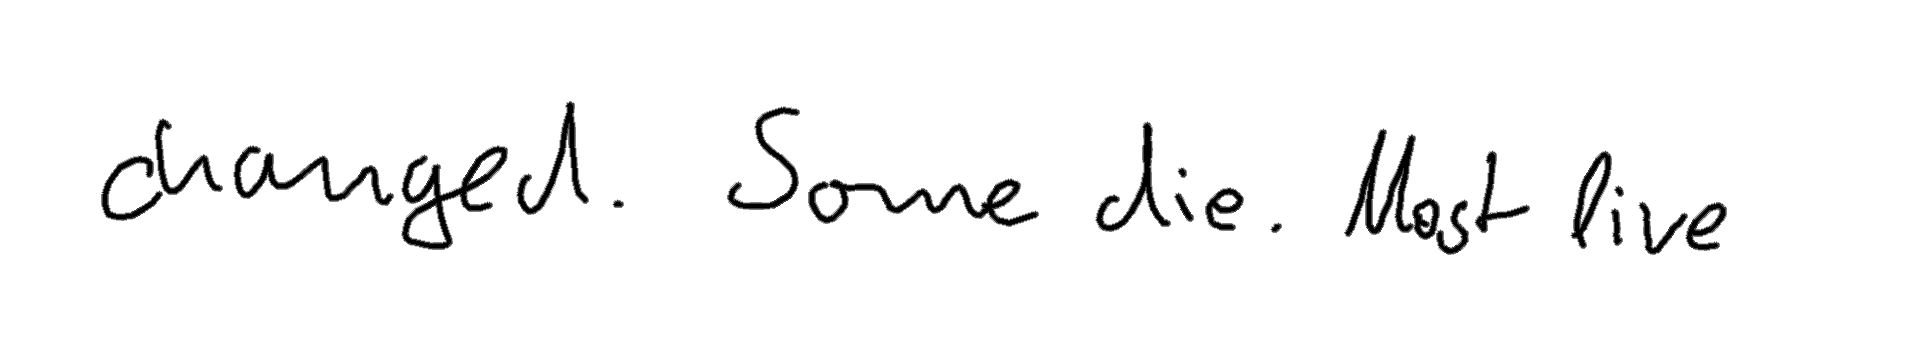 changed. Some die. Most live